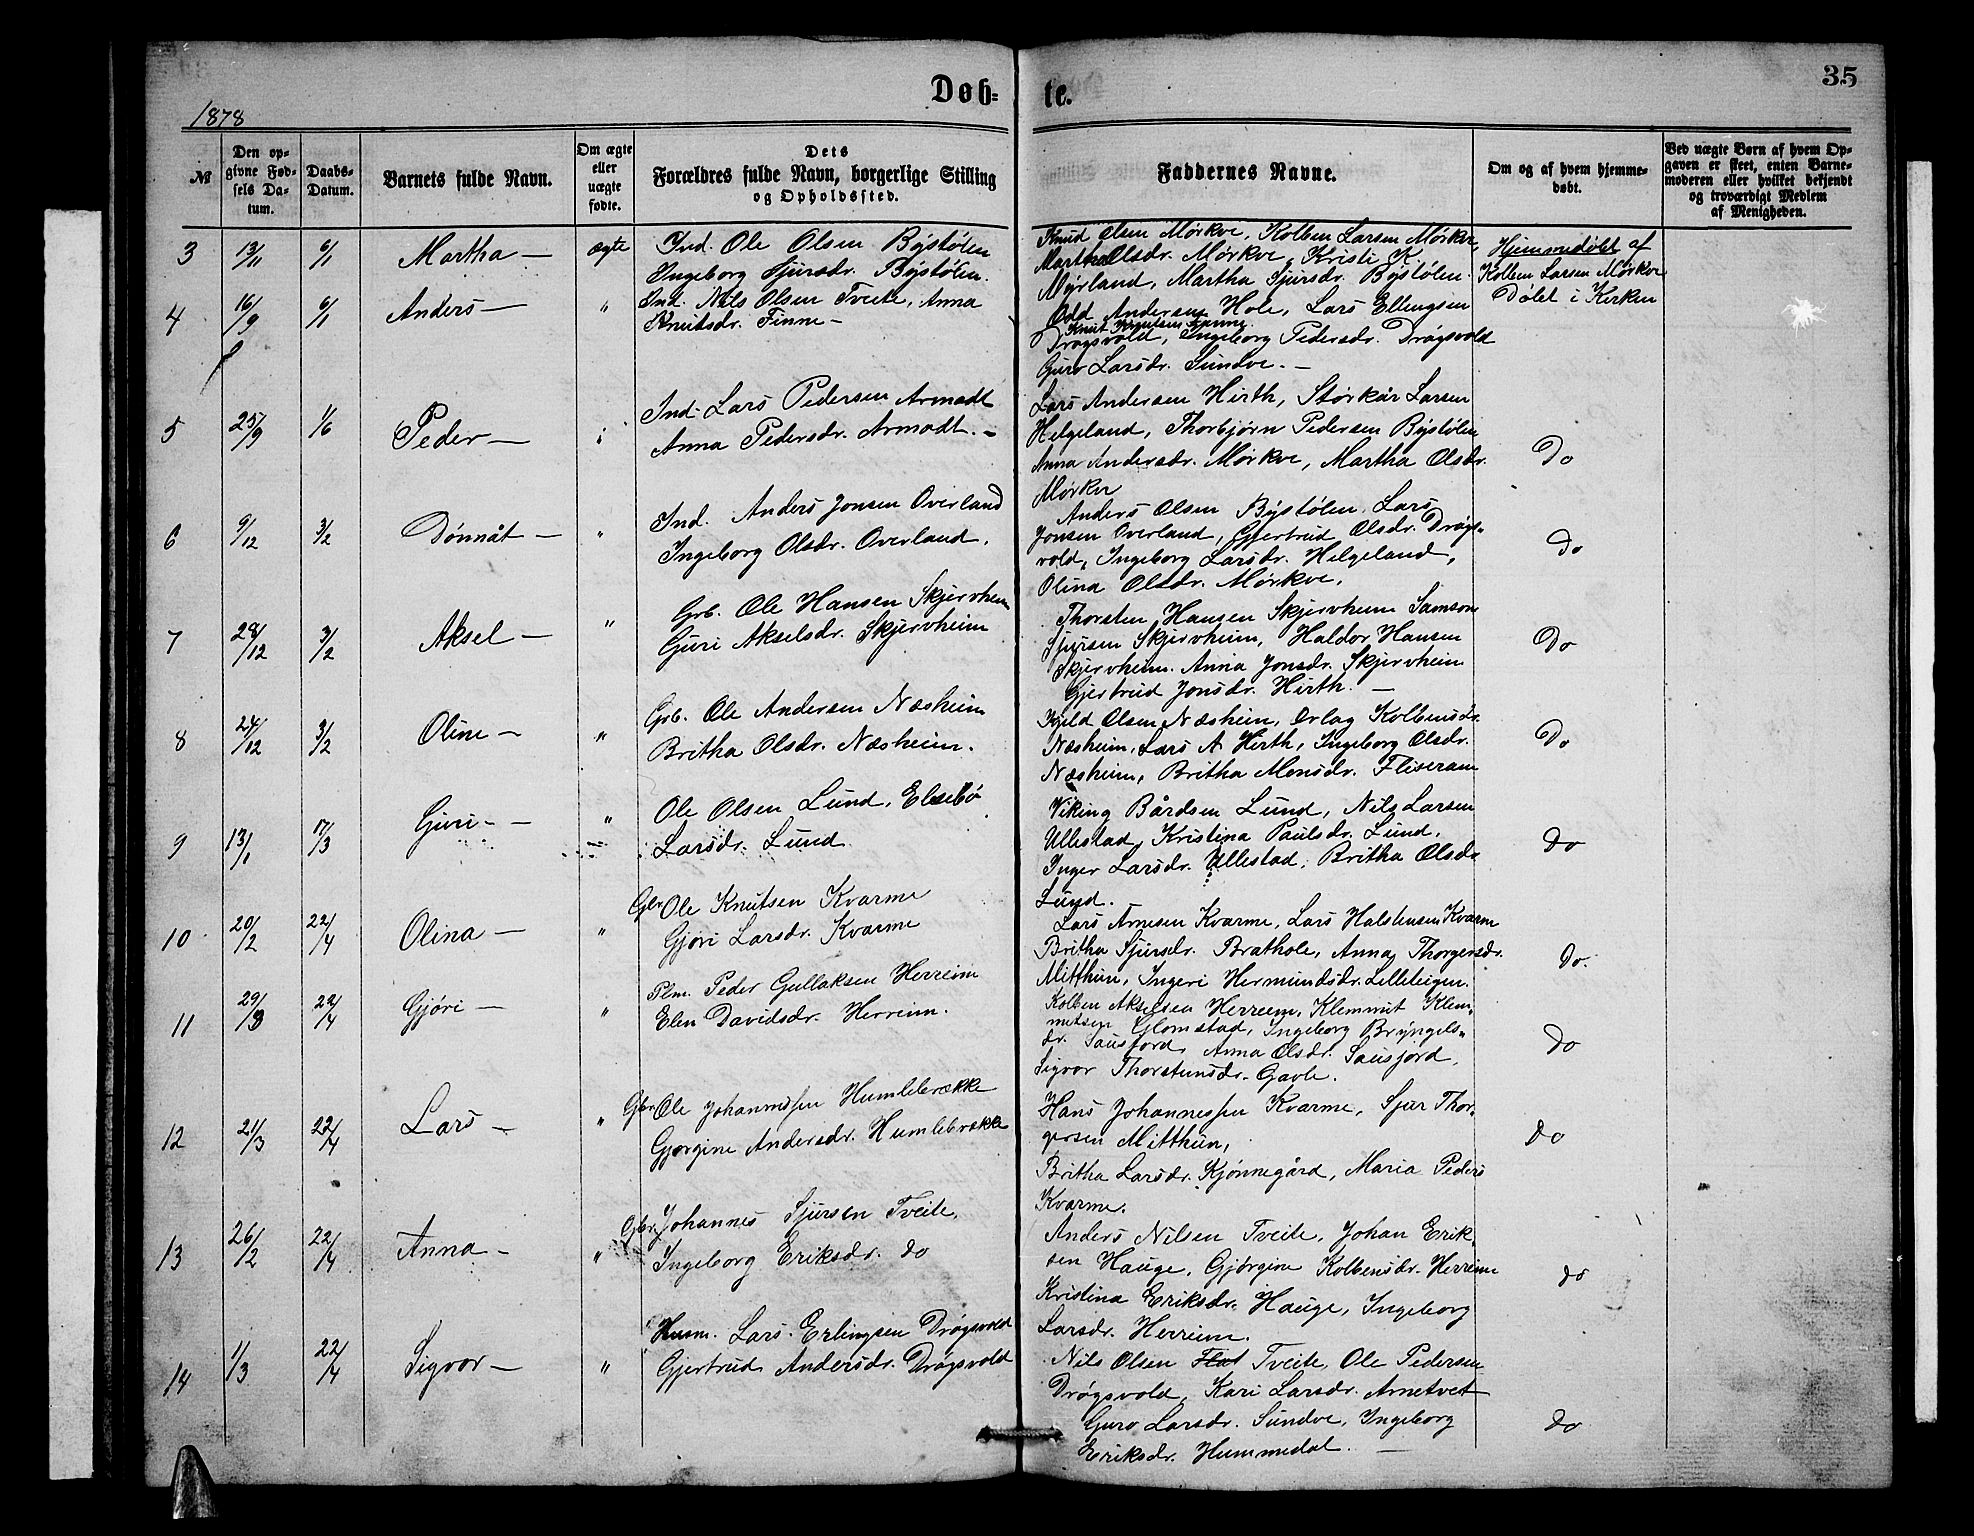 Døb=
te.
35
1878
№
Den op-
givne Fød-
sels Da-
tum.
Daabs-
Datum.
Barnets fulde Navn.
Om ægte
eller
uægte
fødte.
Dets
Forældres fulde Navn, borgerlige Stilling
og Opholdssted.
Faddernes Navne.
Om og af hvem hjemme-
døbt.
Ved uægte Børn af hvem Op-
gaven er skeet, enten Barne-
moderen eller hvilket bekjendt
og troværdigt Medlem
af Menigheden.
3
13/11
6/1
Martha —
ægte
Ind. Ole Olsen Bystølen
Ingeborg Sjursdr. Bystølen.
Knud Olsen Mørkve, Kolben Larsen Mørkve,
Martha Olsdr. Mørkve, Kristi K.
Myrland, Martha Sjursdr. Bystølen.
Hjemmedøbt af
Kolben Larsen Mørkve
Døbt i Kirken
4
16/9
6/1
Anders —
"
Ind. Nils Olsen Tveite, Anna
Knutsdr. Finne —
Odd Andersen Hole, Lars Ellingsen
Knut Knutsen Finne
Drøgsvold, Ingeborg Pedersdr. Drøgsvold
Guro Larsdr. Sundve. —
5
25/9
1/6
Peder —
Ind. Lars Pedersen Armodt
Anna Pedersdr. Armodt. —
Lars Andersen Hirth, Størkår Larsen
Helgeland, Thorbjørn Pedersen Bystølen
Anna Andersdr. Mørkve, Martha Olsdr.
Mørkve
Do
6
9/12
3/2
Dønnåt —
"
Ind. Anders Jonsen Overland
Ingeborg Olsdr. Overland.
Anders Olsen Bystølen, Lars
Jonsen Overland, Gjertrud Olsdr. Drøgs-
vold, Ingeborg Larsdr. Helgeland,
Olina Olsdr. Mørkve.
Do
7
28/12
3/2
Aksel —
"
Grb. Ole Hansen Skjervheim
Guri Akselsdr. Skjervheim
Thorsten Hansen Skjervheim Samson
Sjursen Skjervheim, Haldor Hansen
Skjervheim. Anna Jonsdr. Skjervheim
Gjertrud Jonsdr. Hirth. —
Do
8
24/12
3/2
Oline —
"
Grb. Ole Andersen Næsheim
Britha Olsdr. Næsheim.
Kjeld Olsen Næsheim, Orlog Kolbensdr.
Næsheim, Lars A Hirth, Ingeborg Olsdr.
Næsheim, Britha Monsdr. Fliseram
Do
9
13/1
17/3
Guri — —
"
Ole Olsen Lund, Elsebø
Larsdr. Lund
Viking Bårdsen Lund, Nils Larsen
Ullestad, Kristina Paulsdr. Lund.
Inger Larsdr. Ullestad, Britha Olsdr
Lund.
Do
10
20/2
22/4
Olina —
"
Gbr. Ole Knutsen Kvarme
Gjøri Larsdr. Kvarme
Lars Arnesen Kvarme, Lars Halstensen Kvarme
Britha Sjursdr. Brathole, Anna Thorgersdr.
Mitthun, Ingeri Hermundsdr. Lilleteigen.
Do.
11
29/3
22/4
Gjøri —
"
Plm. Peder Gullaksen Herreim
Elen Davidsdr. Herreim.
Kolben Akselsen Herreim, Klemmit Klem-
metsen Glomstad, Ingeborg Bryngels-
dr. Sausjord, Anna Olsdr. Sausjord,
Sigvor Thorstensdr. Gavle.
Do
12
21/3
22/4
Lars —
"
Gbr. Ole Johannessen Humlebrække
Gjørgine Andersdr. Humlebrække
Hans Johannessen Kvarme, Sjur Thor-
gersen Mitthun,
Britha Larsdr. Kjønnegård, Maria Peders
Kvarme.
Do
13
26/2
22/4
Anna —
"
Gbr. Johannes Sjursen Tveite,
Ingeborg Eriksdr. do
Anders Nilsen Tveite, Johan Erik-
sen Hauge, Gjørgine Kolbensdr. Herreim
Kristina Eriksdr. Hauge, Ingeborg
Larsdr. Herreim.
do
14
1/3
22/4
Sigvor —
"
Husm. Lars Erlingsen Drøgsvold
Gjertrud Andersdr. Drøgsvold
Nils Olsen Flat Tveite, Ole Pedersen
Drøgsvold, Kari Larsdr. Arnetvet
Guro Larsdr. Sundve, Ingeborg
Eriksdr. Hummedal. —
do